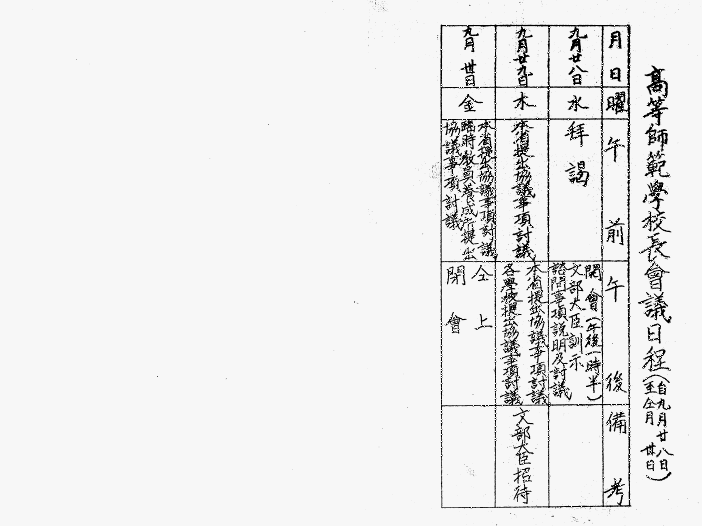 高等師範學校長會議日程(自九月廿八日
至仝月卅日)
月日
曜
午前
午後
備考
九月廿八日
水
拜謁
開會(午後一時半)
文部大臣訓示
諮問事項説明及討議
九月廿九日
木
本省提出協議事項討議
本省提出協議事項討議
各學校提出協議事項討議
文部大臣招待
九月卅日
金
本省提出協議事項討議
臨時敎員養成所提出
協議事項討議
仝上
閉會